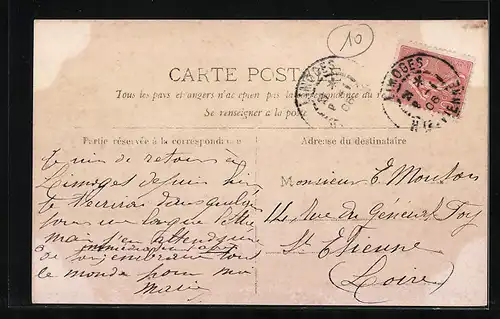 10
CARTE POSTALE
Tous les pays étrangers n'acceptent pas la correspondance au
Se renseigner a la poste
LIMOGES
LIMOGES
Hte VIENNE
Partie réservée à la correspondance
Adresse du destinataire
Je suis de retour à
Limoges depuis hier
je t'écrirai dans quelques
jours une longue lettre
mais en attendant
je
le monde pour moi
Marie
Monsieur E. Mouton
14 Rue du Général Foy
St Etienne
(Loire)